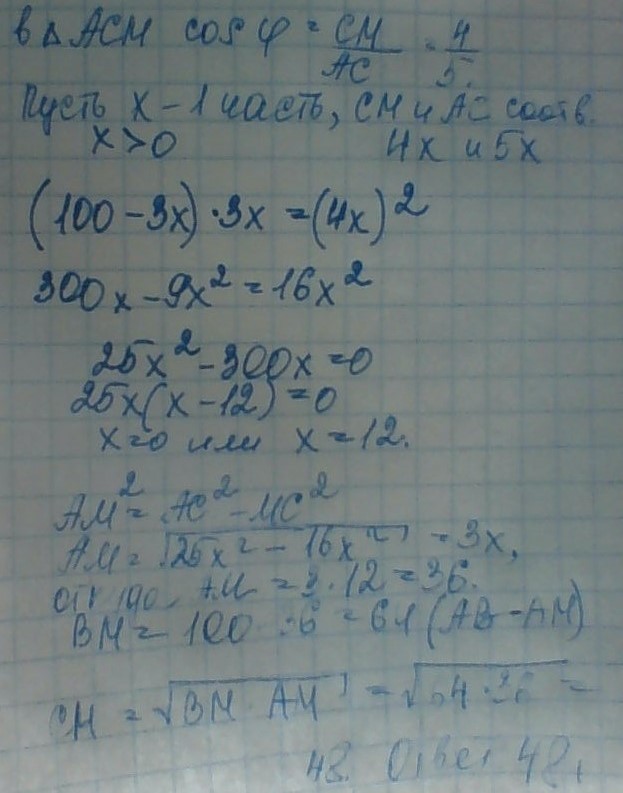 в △ ACM cos φ = CM/AC = 4/5.
Пусть x - 1 часть, CM и AC соотв.
x > 0 4x и 5x
(100 - 3x) · 3x = (4x)²
300x - 9x² = 16x²
25x² - 300x = 0
25x(x - 12) = 0
x = 0 или x = 12.
AM² = AC² - MC²
AM = √25x² - 16x² = 3x,
AM = 3 · 12 = 36.
BM = 100 - 36 = 64 (AB - AM)
CM = √BM · AM = √64 · 36 =
48. Ответ 48.